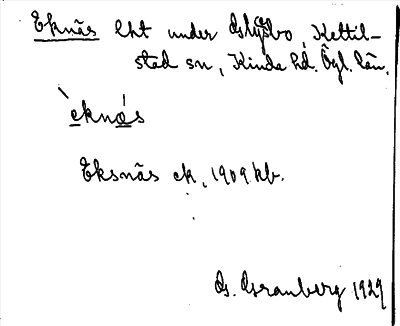 Eknäs lht under Glysbo, Kettil-
stad sn, Kinda hd. Ögl. län.
èknás
Eksnäs ek, 1909 kb.
G. Granberg 1929